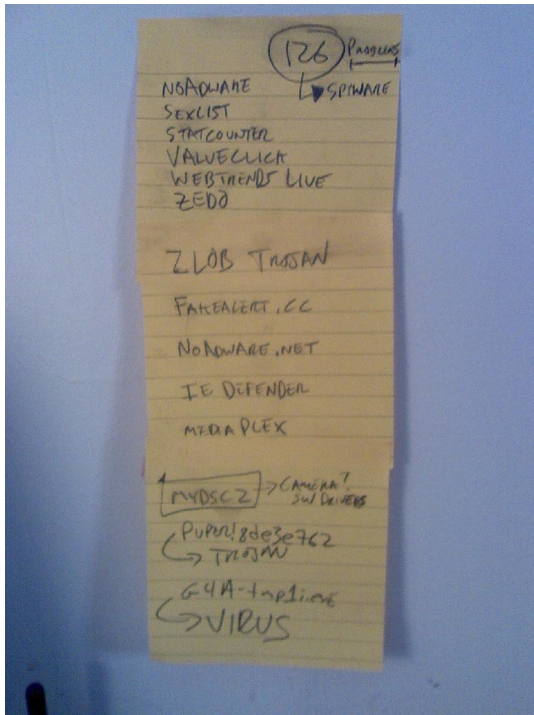 126
SPYWARE
NOADWARE
SEXLIST
STATCOUNTER
VALUECLICK
WEBTRENDS LIVE
ZEDO
ZLOB TROJAN
FAKEALERT.CC
NOADWARE.NET
IE DEFENDER
MEDIAPLEX
MYDSC2 CAMERA?
SW DRIVERS
PUPER!8de3e762
TROJAN
VIRUS